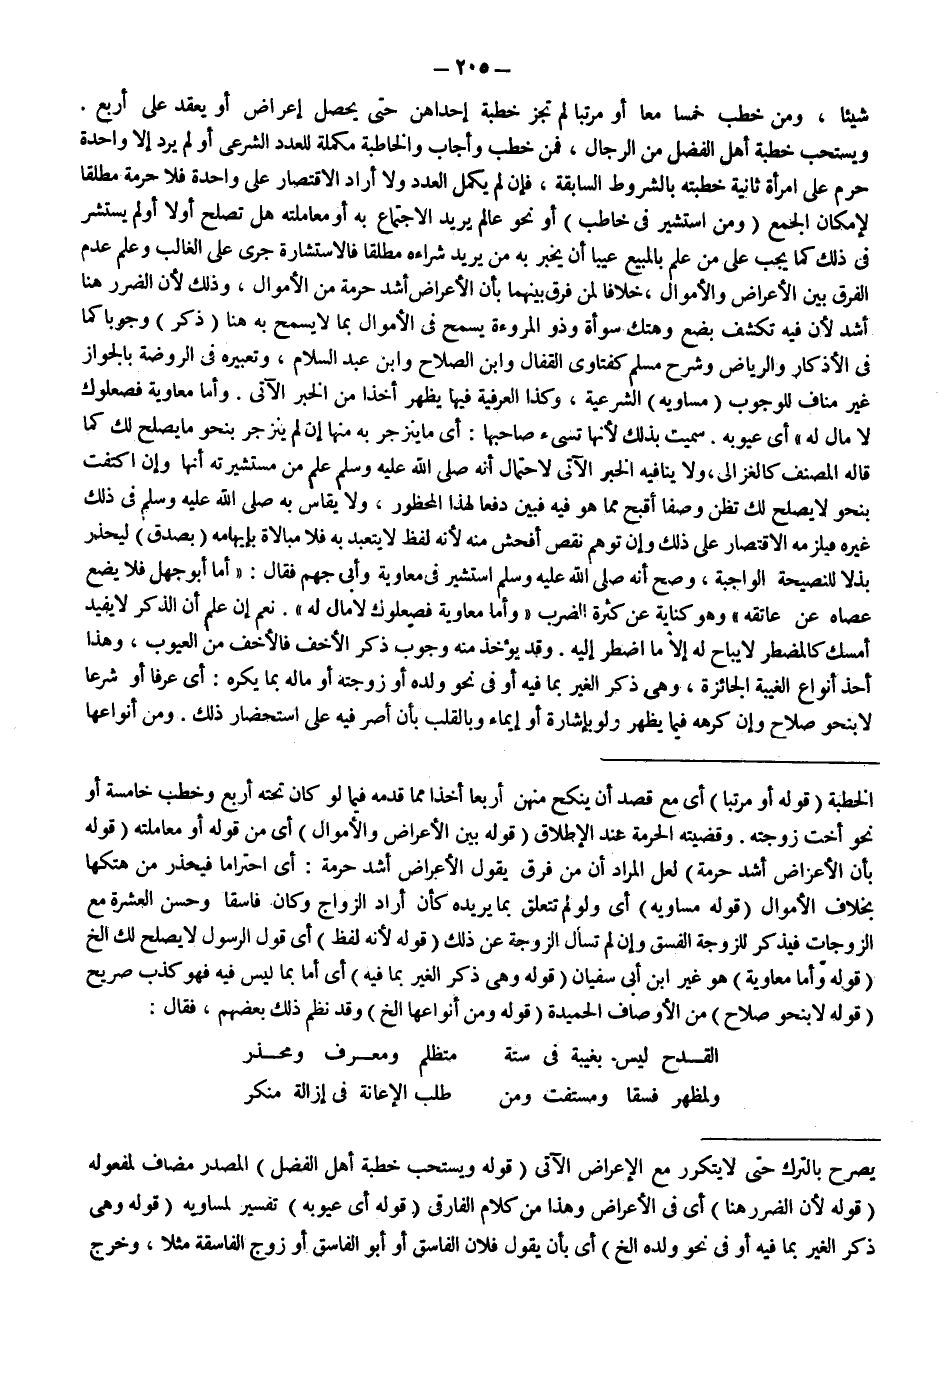 — ٢٠٥ —
شيئا ، ومن خطب خمسا معا أو مرتبا لم تجز خطبة إحداهن حتى يحصل إعراض أو يعقد على أربع .
ويستحب خطبة أهل الفضل من الرجال ، فمن خطب وأجاب والخاطبة مكملة للعدد الشرعى أو لم يرد إلا واحدة
حرم على امرأة ثانية خطبته بالشروط السابقة ، فإن لم يكمل العدد ولا أراد الاقتصار على واحدة فلا حرمة مطلقا
لإمكان الجمع ( ومن استشير فى خاطب ) أو نحو عالم يريد الاجتماع به أو معاملته هل تصلح أولا أولم يستشر
فى ذلك كما يجب على من علم بالمبيع عيبا أن يخبر به من يريد شراءه مطلقا فالاستشارة جرى على الغالب وعلم عدم
الفرق بين الأعراض والأموال ، خلافا لمن فرق بينهما بأن الأعراض أشد حرمة من الأموال ، وذلك لأن الضرر هنا
أشد لأن فيه تكشف بضع وهتك سوأة وذو المروءة يسمح فى الأموال بما لايسمح به هنا ( ذكر ) وجوبا كما
فى الأذكار والرياض وشرح مسلم كفتاوى القفال وابن الصلاح وابن عبد السلام ، وتعبيره فى الروضة بالجواز
غير مناف للوجوب ( مساويه ) الشرعية ، وكذا العرفية فيما يظهر أخذا من الخبر الآتى . وأما معاوية فصعلوك
لا مال له » أى عيوبه . سميت بذلك لأنها تسىء صاحبها : أى ماينزجر به منها إن لم ينزجر بنحو مايصلح لك كما
قاله المصنف كالغزالى، ولا ينافيه الخبر الآتى لاحتمال أنه صلى الله عليه وسلم علم من مستشيرته أنها وإن اكتفت
بنحو لايصلح لك تظن وصفا أقبح مما هو فيه فبين دفعا لهذا المحظور ، ولا يقاس به صلى الله عليه وسلم فى ذلك
غيره فيلزمه الاقتصار على ذلك وإن توهم نقص أفحش منه لأنه لفظ لايتعبد به فلا مبالاة بإيهامه ( بصدق ) ليحذر
بذلا للنصيحة الواجبة ، وصح أنه صلى الله عليه وسلم استشير فى معاوية وأبى جهم فقال : « أما أبوجهل فلا يضع
عصاه عن عاتقه » وهو كناية عن كثرة الضرب « وأما معاوية فصعلوك لامال له » . نعم إن علم أن الذكر لايفيد
أمسك كالمضطر لايباح له إلا ما اضطر إليه . وقد يؤخذ منه وجوب ذكر الأخف فالأخف من العيوب ، وهذا
أحد أنواع الغيبة الجائزة ، وهى ذكر الغير بما فيه أو فى نحو ولده أو زوجته أو ماله بما يكره : أى عرفا أو شرعا
لابنحو صلاح وإن كرهه فيما يظهر ولو بإشارة أو إيماء وبالقلب بأن أصر فيه على استحضار ذلك . ومن أنواعها
الخطبة ( قوله أو مرتبا ) أى مع قصد أن ينكح منهن أربعا أخذا مما قدمه فيما لو كان تحته أربع وخطب خامسة أو
نحو أخت زوجته . وقضيته الحرمة عند الإطلاق ( قوله بين الأعراض والأموال ) أى من قوله أو معاملته ( قوله
بأن الأعراض أشد حرمة ) لعل المراد أن من فرق يقول الأعراض أشد حرمة : أى احتراما فيحذر من هتكها
بخلاف الأموال ( قوله مساويه ) أى ولو لم تتعلق بما يريده كأن أراد الزواج وكان فاسقا وحسن العشرة مع
الزوجات فيذكر للزوجة الفسق وإن لم تسأل الزوجة عن ذلك ( قوله لأنه لفظ ) أى قول الرسول لايصلح لك الخ
( قوله وأما معاوية ) هو غير ابن أبى سفيان ( قوله وهى ذكر الغير بما فيه ) أى أما بما ليس فيه فهو كذب صريح
( قوله لابنحو صلاح ) من الأوصاف الحميدة ( قوله ومن أنواعها الخ ) وقد نظم ذلك بعضهم ، فقال :
القـدح ليس بغيبة فى ستة متظلم ومعـرف ومحـذر
ولمظهر فسقا ومستفت ومن طلب الإعانة فى إزالة منكر
يصرح بالترك حتى لايتكرر مع الإعراض الآتى ( قوله ويستحب خطبة أهل الفضل ) المصدر مضاف لمفعوله
( قوله لأن الضرر هنا ) أى فى الأعراض وهذا من كلام الفارق ( قوله أى عيوبه ) تفسير لمساويه ( قوله وهى
ذكر الغير بما فيه أو فى نحو ولده الخ ) أى بأن يقول فلان الفاسق أو أبو الفاسق أو زوج الفاسقة مثلا ، وخرج